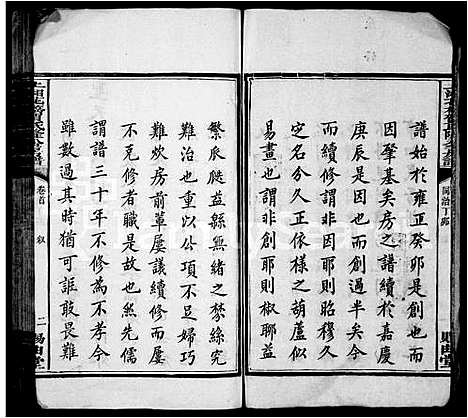 譜始於雍正癸卯是創也
因肇基矣房之譜續於嘉慶
庚辰是因也而創過半矣今
而續修謂非因耶則昭穆久
定名分久正依樣之葫蘆似
易畫也謂非創耶則椒聊益
同治丁卯
繁瓜瓞益緜無緒之棼絲究
難治也重以公項不足婦巧
難炊房前輩屢議續修而屢
不克修者職是故也然先儒
謂譜三十年不修為不孝今
雖數過其時猶可誰敢畏難
卷首
叙
二